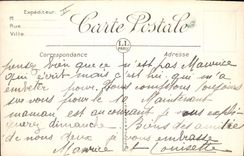 Expéditeur
M
Rue
Ville
Carte Postale
Correspondance
Adresse
pensez bien que ce n'est pas Maurice
qui écrit mais c'est lui qui m'a
embêter pour. Nous comptons toujours
sur vous pour le 10 Maintenant
maman est au courant je vous
dimanche. Biens des amitiés
de nous deux je vous embrasse
Maurice et Louisette